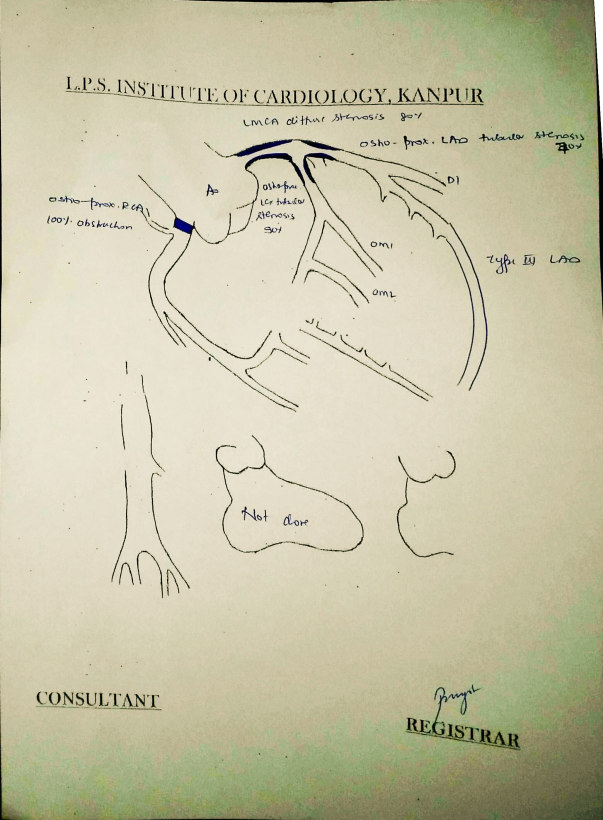 L.P.S. INSTITUTE OF CARDIOLOGY, KANPUR
LMCA diffuse stenosis 90%
osteo-prox. LAD tubular stenosis
90%
D1
Ao
osteo-prox
LCx tubular
stenosis
90%
osteo-prox. RCA
100% obstruction
OM1
OM2
Type III LAD
Not done
CONSULTANT
REGISTRAR